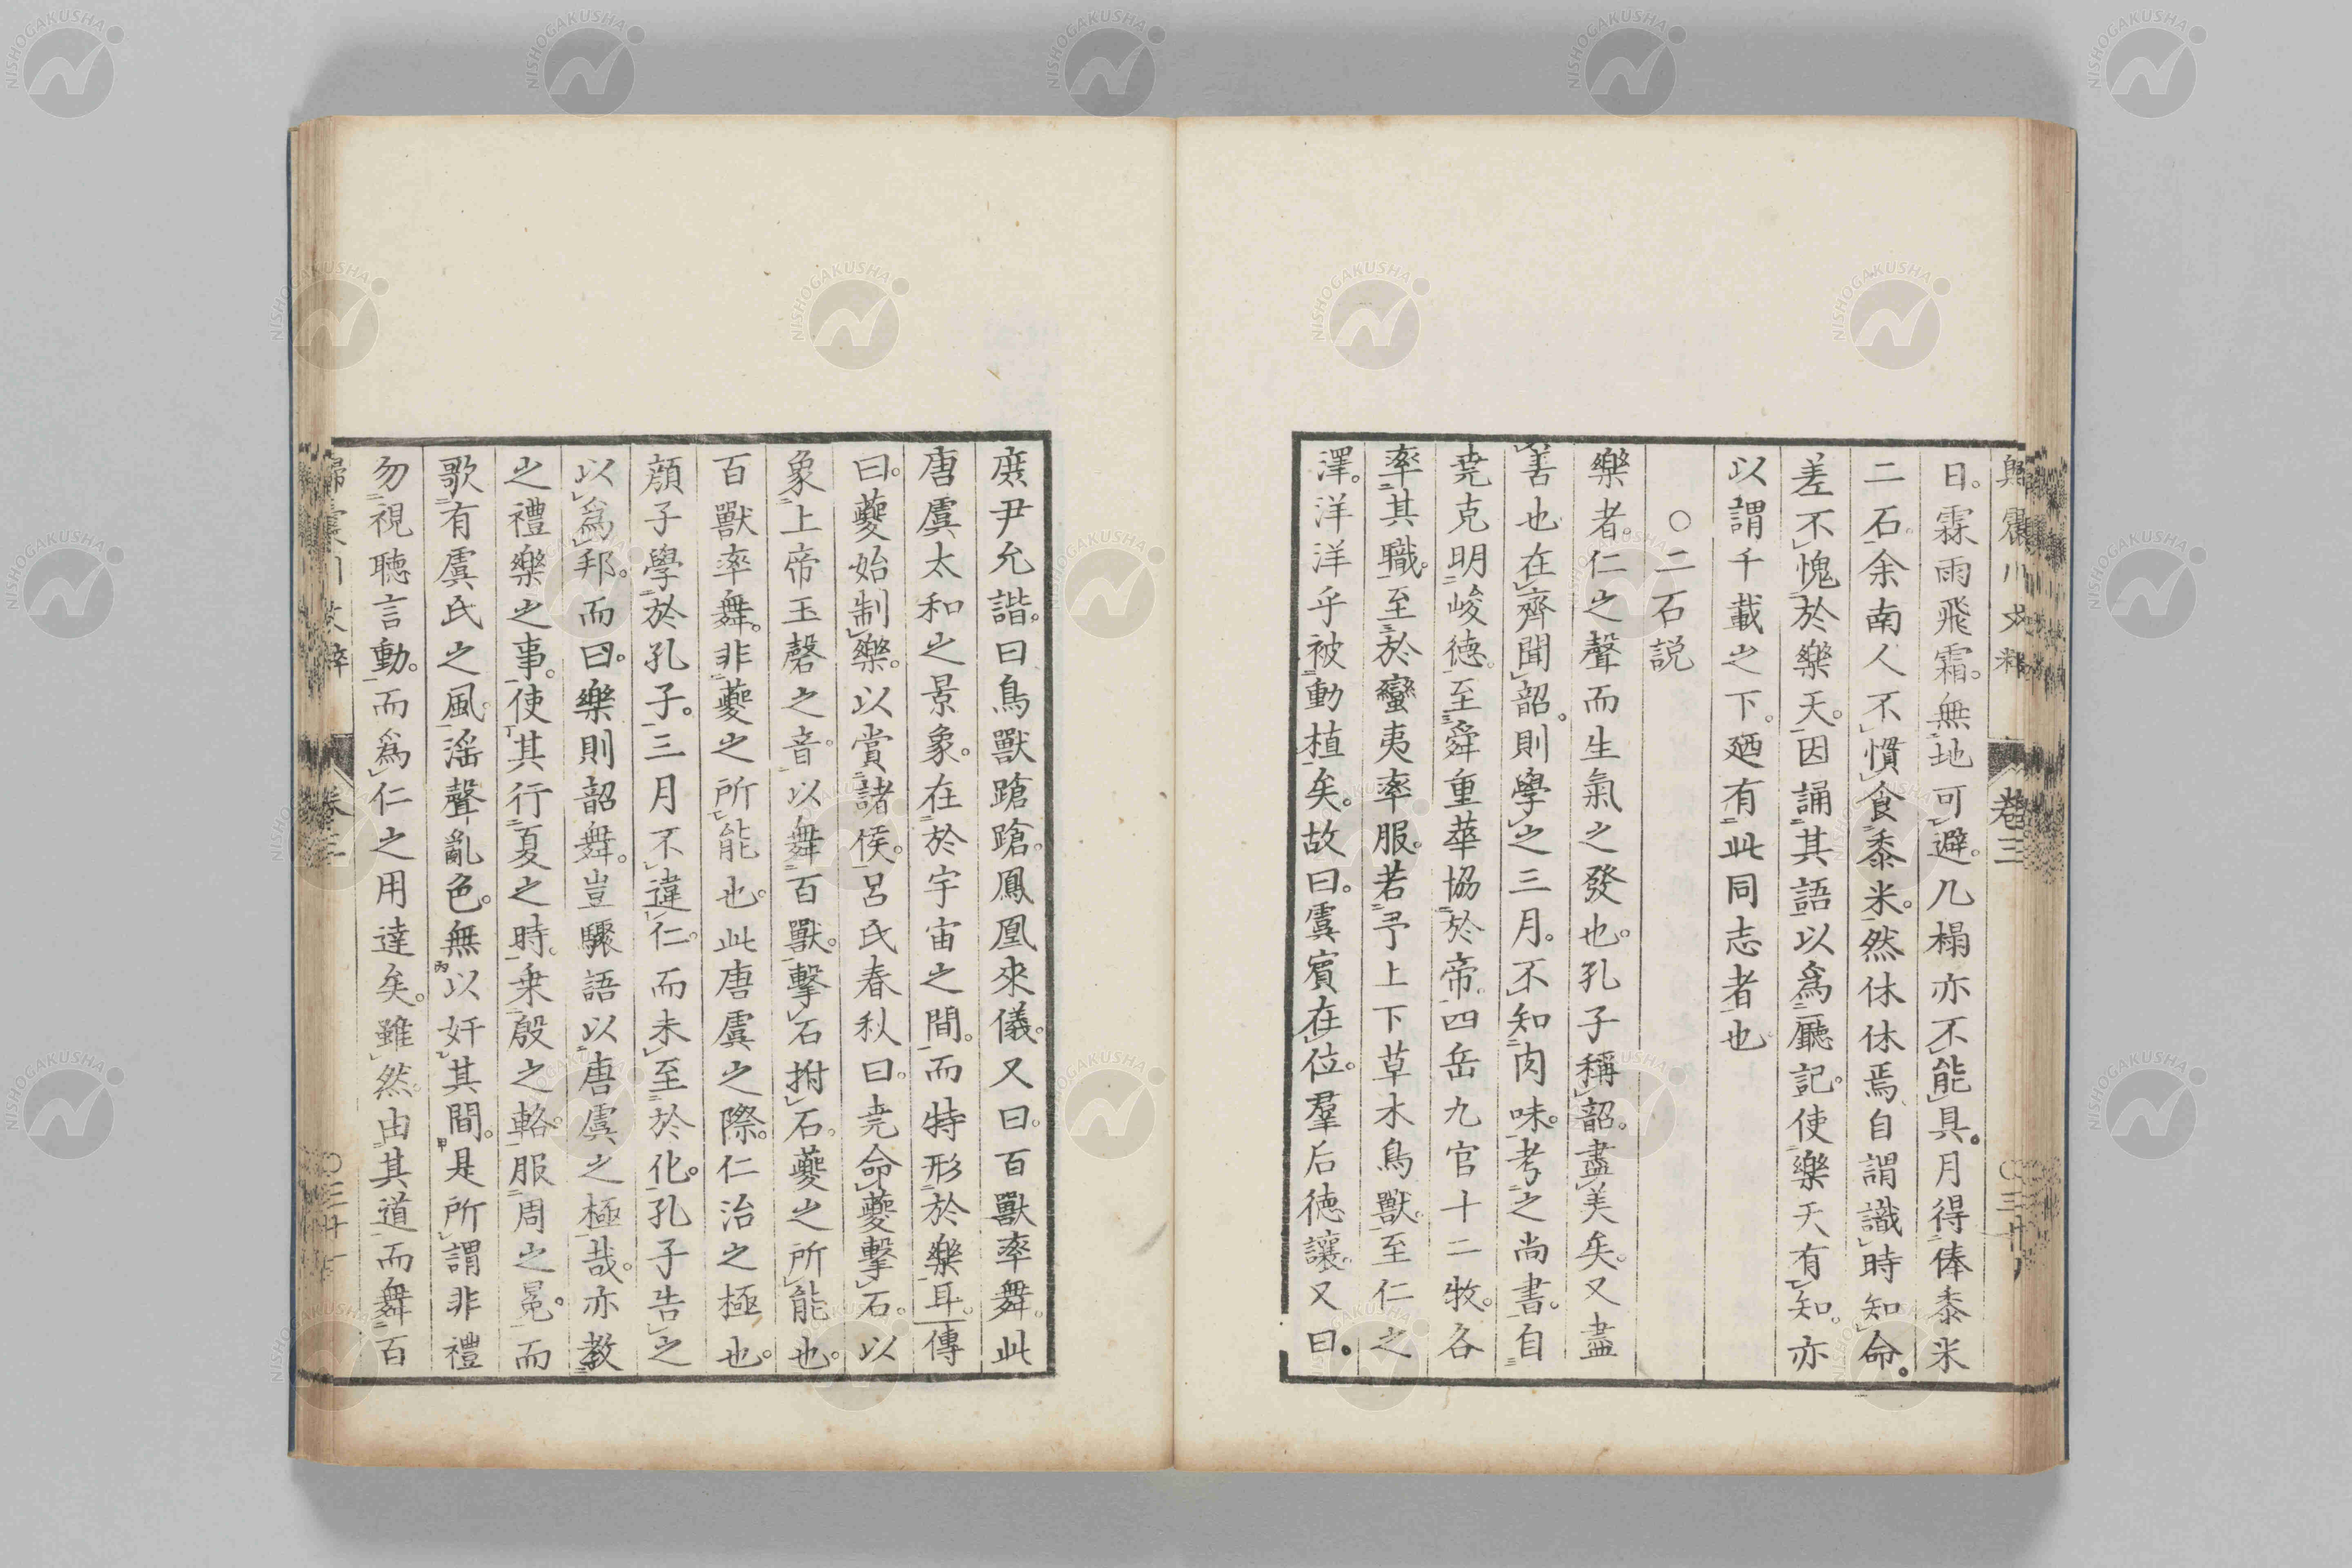 日。霖雨飛霜。無地可避。几榻亦不能具。月得俸黍米
二石。余南人不慣食黍米。然休休焉自謂識時知命。
差不愧於樂天。因誦其語以爲廳記。使樂天有知。亦
以謂千載之下。廼有此同志者也。
○二石説
樂者。仁之聲而生氣之發也。孔子稱韶。盡美矣。又盡
善也。在齊聞韶。則學之三月。不知肉味。考之尚書。自
堯克明峻德。至舜重華協於帝。四岳九官十二牧。各
率其職。至於蠻夷率服。若予上下草木鳥獸。至仁之
澤。洋洋乎被動植矣。故曰。虞賓在位。羣后德讓。又曰。
庶尹允諧。曰鳥獸蹌蹌。鳳凰來儀。又曰。百獸率舞。此
唐虞太和之景象。在於宇宙之間。而特形於樂耳。傳
曰。夔始制樂。以賞諸侯。呂氏春秋曰。堯命夔擊石。以
象上帝玉磬之音。以舞百獸。擊石拊石。夔之所能也。
百獸率舞。非夔之所能也。此唐虞之際。仁治之極也。
顏子學於孔子。三月不違仁。而未至於化。孔子告之
以爲邦。而曰。樂則韶舞。豈驟語以唐虞之極哉。亦教
之禮樂之事。使其行夏之時。乗殷之輅。服周之冕。而
歌有虞氏之風。淫聲亂色。無以奸其間。是所謂非禮
勿視聽言動。而爲仁之用達矣。雖然。由其道而舞百
卷三
NISHOGAKUSHA